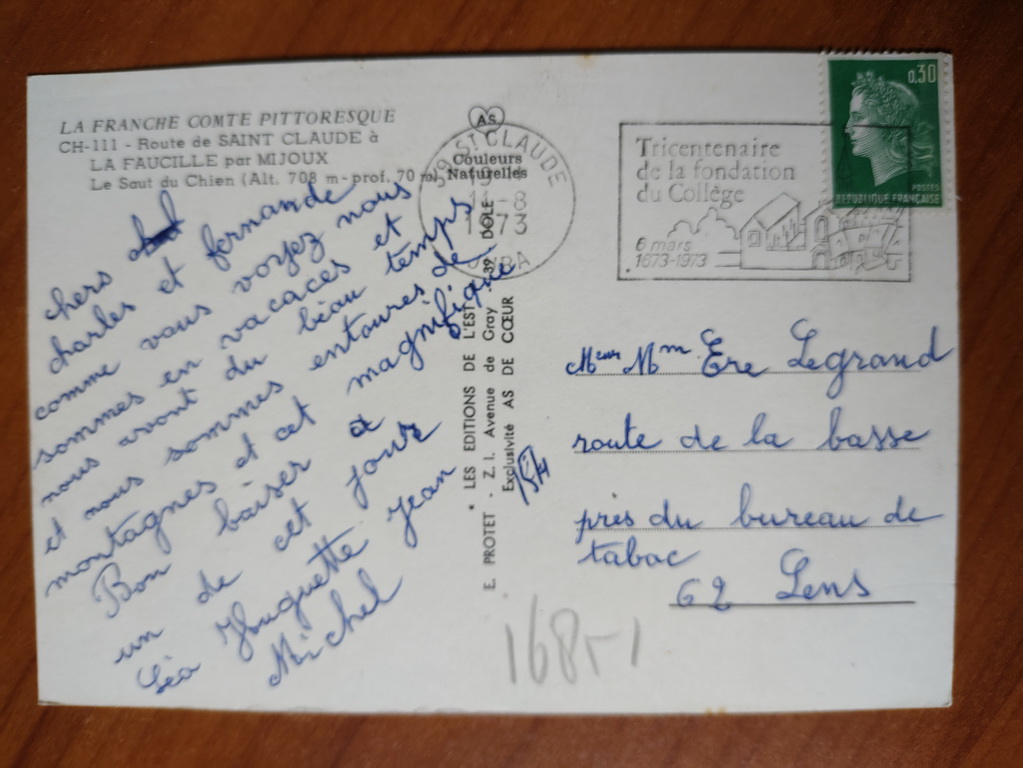 LA FRANCHE COMTE PITTORESQUE
CH-111 - Route de SAINT CLAUDE à
LA FAUCILLE par MIJOUX
Le Saut du Chien (Alt. 708 m - prof. 70 m)
AS
Couleurs
Naturelles
39 ST CLAUDE
-8
1973
JURA
Tricentenaire
de la fondation
du Collège
6 mars
1673-1973
0,30
POSTES
REPUBLIQUE FRANÇAISE
chers
charles et fernande
comme vous voyez nous
sommes en vacaces et
nous avont du béau temps
et nous sommes entoures de
montagnes et cet magnifique
Bon baiser a
un de cet jours
Léa Huguette Jean
Michel
* LES EDITIONS DE L'EST
E. PROTET - Z.I. Avenue de Gray 39 DOLE
Exclusivité AS DE CŒUR
Mm Ere Legrand
route de la basse
près du bureau de
tabac
62 Lens